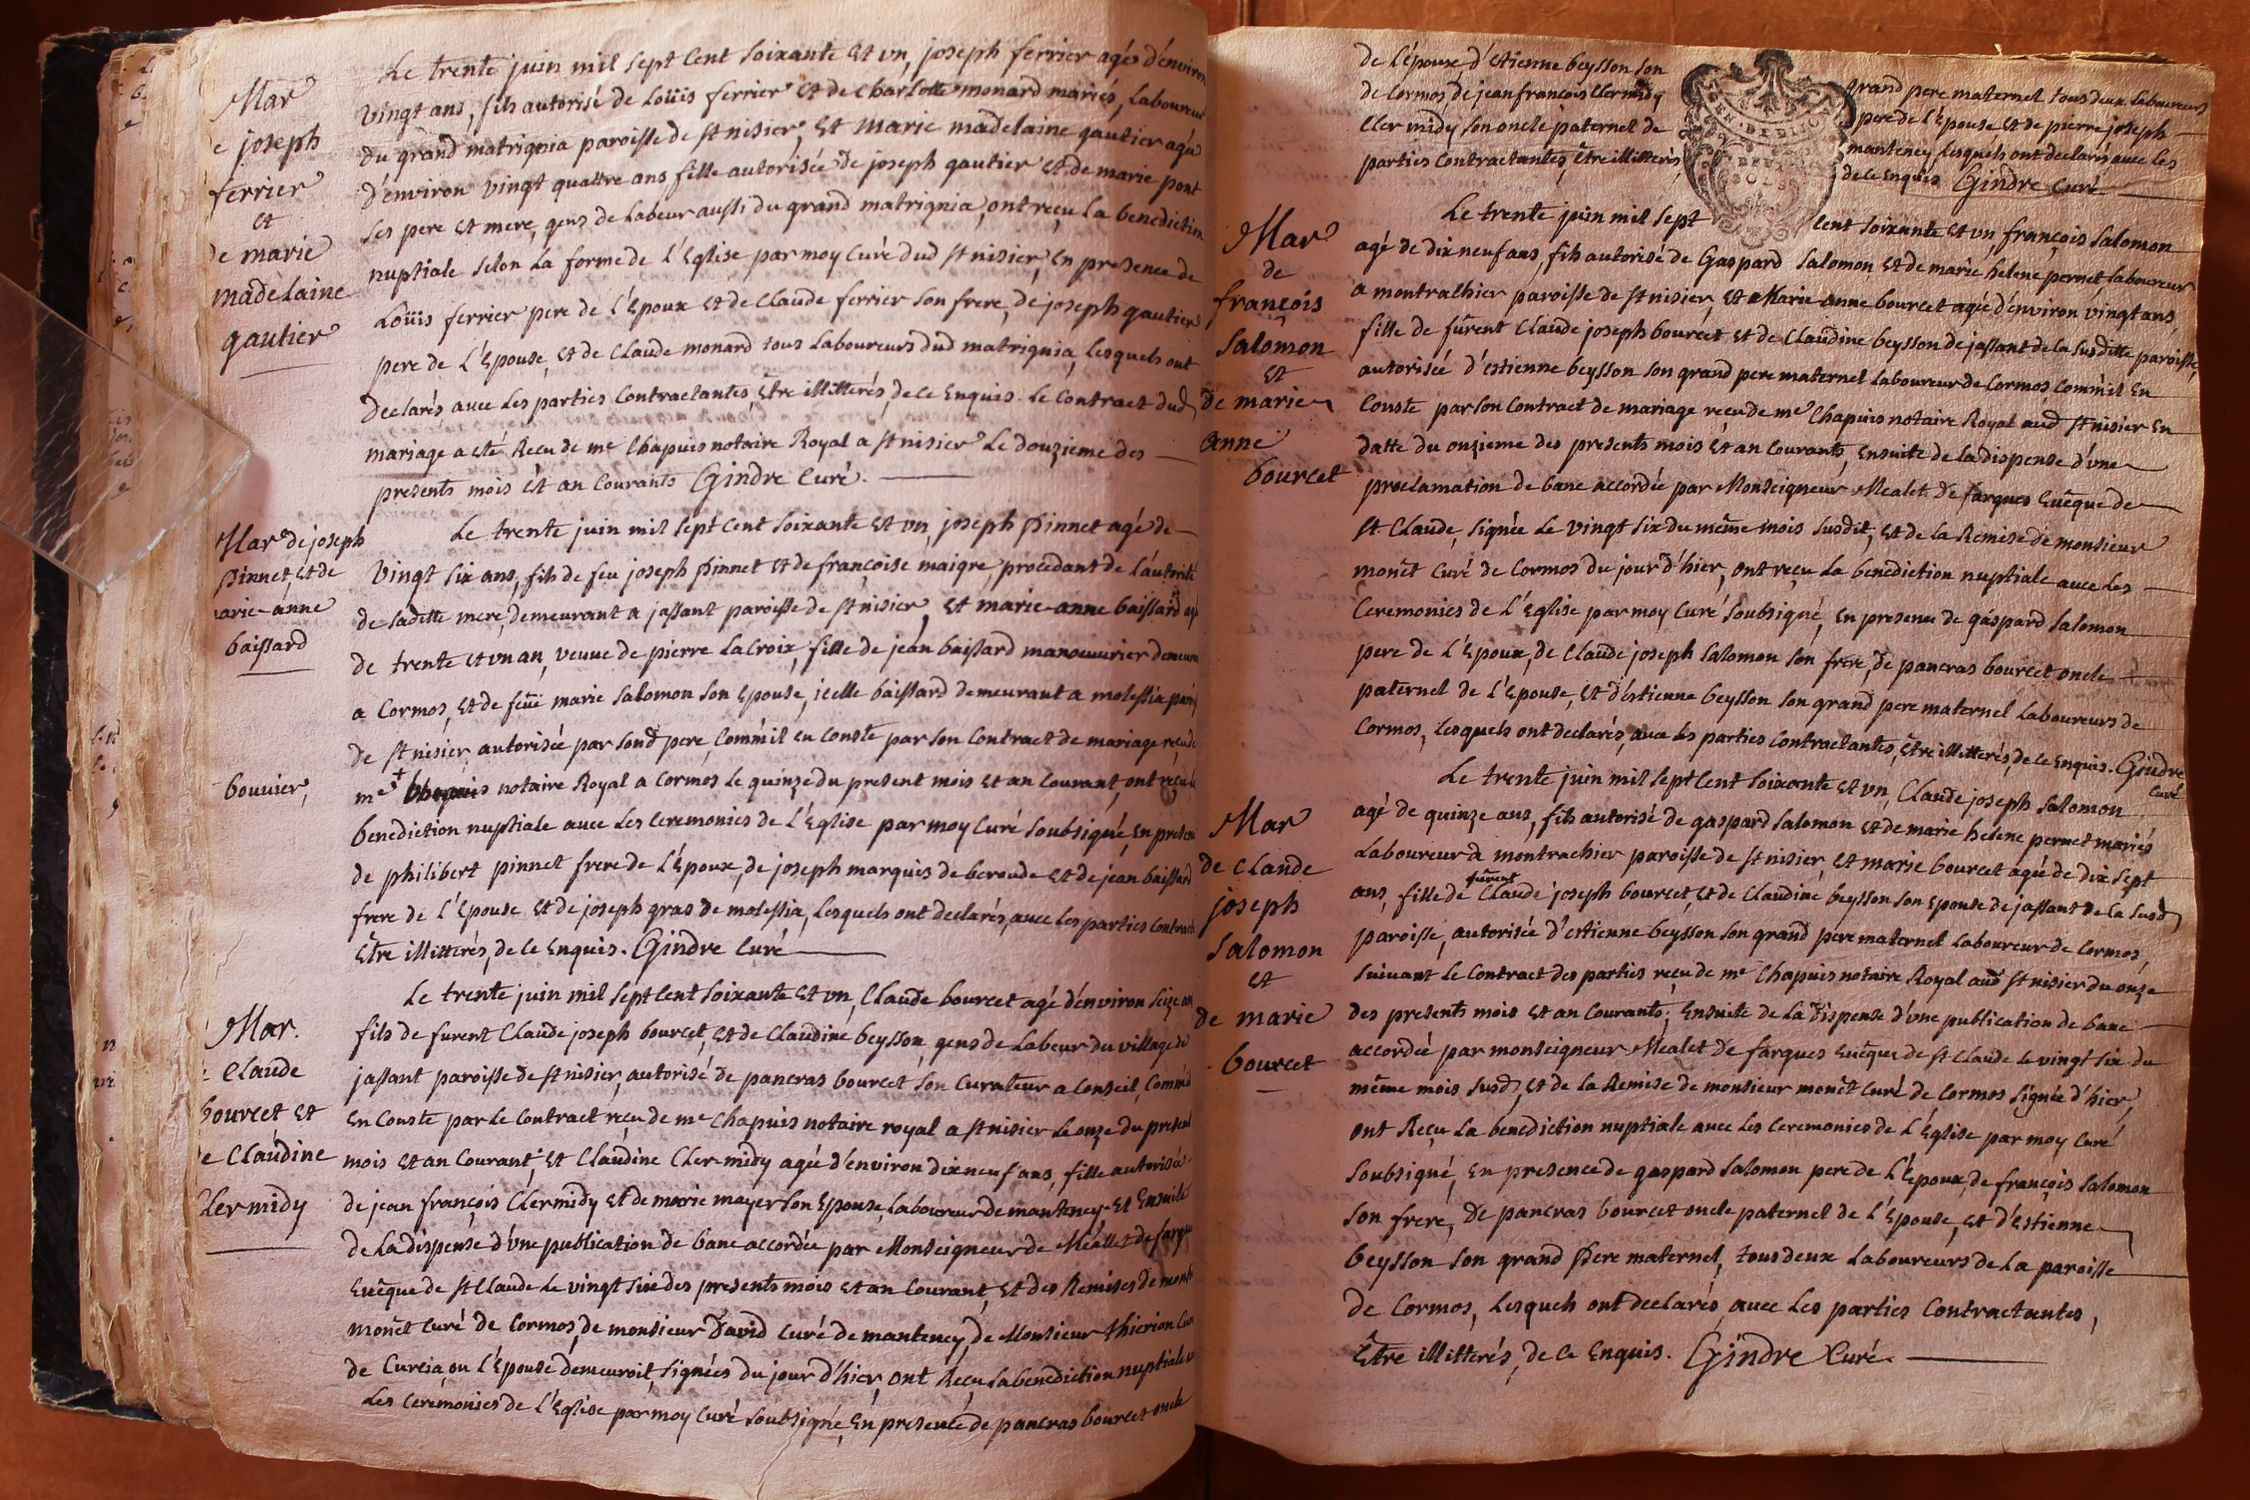 Mar
e joseph
ferrier
et
de marie
madelaine
gautier
Le trente juin mil sept cent soixante et vn, joseph ferrier agé d'environ
vingt ans, fils autorisé de Loüis ferrier et de charlotte monard mariés, Laboureur
du grand matrignia paroisse de st nisier, et marie madelaine gautier agée
d'environ vingt quattre ans fille autorisée de joseph gautier et de marie pont
ses pere et mere, gens de Labeur aussi du grand matrignia, ont reçu la benediction
nuptiale selon La forme de l'Eglise par moy Curé dud st nisier, en presence de
Loüis ferrier pere de l'Epoux et de Claude ferrier son frere, de joseph gautier
pere de L'Epouse, et de Claude monard tous Laboureurs dud matrignia, Lesquels ont
declarés auec Les parties Contractantes, Être illitterés, de ce Enquis. Le Contract dud
mariage a eté Recu de me Chapuis notaire Royal a st nisier Le douzieme des
presents mois et an Courants Gindre Curé.
Mar de joseph
pinnet, et de
arie-anne
baissard
bouuier,
Le trente juin mil sept Cent soixante et vn, joseph pinnet agé de
vingt six ans, fils de feu joseph pinnet et de françoise maigre, procedant de L'autorité
de ladette mere, demeurant a jassant paroisse de st nisier, et marie-anne baissard agé
de trente et vn an, veuue de pierre Lacroix, fille de jean baissard manouurier demeura
a Cormos, et de feüe marie salomon son Epouse, icelle baissard demeurant a molessia paro
de st nisier, autorisée par sond pere, Comm'il en Conste par son Contract de mariage, reçu de
me + notaire Royal a Cormos Le quinze du present mois et an Courant, ont reçu la
benediction nuptiale auec Les Ceremonies de L'Eglise par moy Curé soubsigné, En presen
de philibert pinnet frere de L'Epoux, de joseph marquis de beroude et de jean baissard
frere de L'Epouse et de joseph gras de molessia, Lesquels ont declarés, auec Les parties Contract
Être illitterés, de ce Enquis. Gindre Curé
Mar.
e Claude
bourcet et
e Claudine
Clermidy
Le trente juin mil sept Cent soixante et vn, Claude bourcet agé d'environ seize ans
fils de furent Claude joseph bourcet, et de Claudine beysson, gens de Labeur du village de
jassant paroisse de st nisier, autorisé de pancras bourcet son Curateur a Conseil, Comm'il
En Conste par Le Contract reçu de me Chapuis notaire royal a st nisier Le onze du present
mois et an Courant, et Claudine Clermidy agée d'environ dix neuf ans, fille autorisée
de jean françois Clermidy et de marie mayer son Epouse, Laboureur de manteney. et Ensuite
de La dispense d'vne publication de banc accordée par Monseigneur de Meallet de fargue
Euêque de st Claude Le vingt six des presents mois et an Courant, et des Remises de monsr
monêt Curé de Cormos, de monsieur David Curé de manteney, de Monsieur thierion Curé
de Curcia, ou L'Epouse demeuroit, signées du jour d'hier, ont Reçu La benediction nuptiale
Les Ceremonies de L'Eglise par moy Curé soubsigné, En presence de pancras bourcet oncle
de L'époux, d'Etienne beysson son grand pere maternel tous deux Laboureurs
de Cormos, de jean françois Clermidy pere de L'Epouse et de pierre joseph
Clermidy son oncle paternel de manteney Lesquels ont declarés auec Les
parties Contractantes, être illitterés, de ce Enquis Gindre Curé
GEN. DE DIJON
DEUX
SOLS
Mar
de
françois
salomon
et
de marie
anne
bourcet
Le trente juin mil sept cent soixante et vn françois salomon
agé de dix neuf ans, fils autorisé de Gaspard salomon et de marie helene pernet, Laboureur
a montrachier paroisse de st nisier, et Marie anne bourcet agée d'environ vingt ans,
fille de furent Claude joseph bourcet et de Claudine beysson de jassant de La susditte paroisse,
autorisée d'estienne beysson son grand pere maternel Laboureur de Cormos Comm'il En
Conste par son Contract de mariage reçu de me Chapuis notaire Royal aud st nisier En
datte du onzieme des presents mois et an Courants, Ensuite de La dispense d'vne
proclamation de banc accordée par Monseigneur Mealet de fargues Euêque de
st Claude, signée Le vingt six du même mois susdit, et de la Remise de monsieur
monêt Curé de Cormos du jour d'hier, ont reçu La benediction nuptiale auec Les
Ceremonies de L'Eglise par moy Curé soubsigné, En presence de gaspard salomon
pere de L'Epoux, de Claude joseph salomon son frere, de pancras bourcet oncle
paternel de L'Epouse, et d'estienne beysson son grand pere maternel Laboureurs de
Cormos, Lesquels ont declarés, auec Les parties Contractantes, Être illitterés, de ce Enquis. Gindre
Curé
Mar
de Claude
joseph
salomon
et
de marie
bourcet
Le trente juin mil sept Cent soixante et vn, Claude joseph salomon
agé de quinze ans, fils autorisé de gaspard salomon et de marie helene pernet mariés
Laboureur a montrachier paroisse de st nisier, et marie bourcet agée de dix sept
ans, fille de furent Claude joseph bourcet, et de Claudine beysson son Epouse de jassant de La susd
paroisse, autorisée d'estienne beysson son grand pere maternel Laboureur de Cormos,
suivant Le Contract des parties reçu de me Chapuis notaire Royal aud st nisier du onze
des presents mois et an Courants; Ensuite de La dispense d'vne publication de banc
accordée par monseigneur Mealet de fargues Euêque de st Claude Le vingt six du
même mois susd, et de la Remise de monsieur monêt Curé de Cormos signée d'hier,
ont Reçu La benediction nuptiale auec Les Ceremonies de L'Eglise par moy Curé
soubsigné, En presence de gaspard salomon pere de L'Epoux, de françois salomon
son frere, de pancras bourcet oncle paternel de L'Epouse, et d'estienne
beysson son grand Pere maternel, tous deux Laboureurs de La paroisse
de Cormos, Lesquels ont declarés auec Les parties Contractantes,
Être illitterés, de ce Enquis. Gindre Curé.